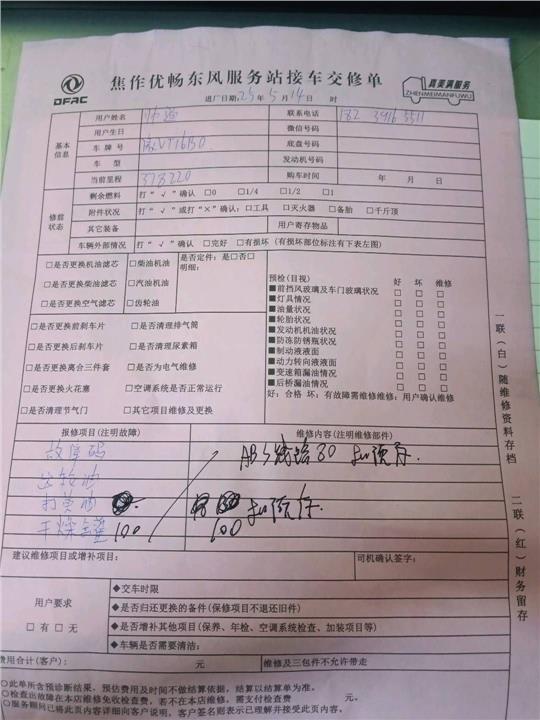 DFAC
焦作优畅东风服务站接车交修单
真美满服务
ZHENMEIMANFUWU
进厂日期:25年5月14日 时
基本信息
用户姓名 联系电话 182 3916 5511
用户生日 微信号码
车牌号 底盘号码
车型 发动机号码
当前里程 373220 购车时间 年 月 日
修前状态
剩余燃料 打“√”确认 □0 □1/4 □1/2 □1
附件状况 打“√”或打“×”确认:□工具 □灭火器 □备胎 □千斤顶
其它装备 用户寄存物品
车辆外部情况 打“√”确认 □完好 □有损坏(有损坏部位标注有下表左图)
□是否更换机油滤芯 □柴油机油 是否定件:是□否□
明细:
□是否更换柴油滤芯 □汽油机油
□是否更换空气滤芯 □齿轮油
□是否更换前刹车片 □是否清理排气筒
□是否更换后刹车片 □是否清理尿素箱
□是否更换离合三件套 □是否为电气维修
□是否更换火花塞 □空调系统是否正常运行
□是否清理节气门 □其它项目维修及更换
预检(目视) 好 坏 维修
■前挡风玻璃及车门玻璃状况 □ □ □
■灯具情况 □ □ □
■油量状况 □ □ □
■轮胎状况 □ □ □
■发动机机油情况 □ □ □
■防冻防锈瓶状况 □ □ □
■制动液液面 □ □ □
■动力转向液液面 □ □ □
■变速箱漏油情况 □ □ □
■后桥漏油情况 □ □ □
好:合格 坏:有故障需维修维修:用户确认维修
报修项目(注明故障) 维修内容(注明维修部件)
故障码 ABS线路80 扣预存.
齿轮油
打黄油 扣预存.
干燥罐 100 100
建议维修项目或增补项目: 司机确认签字:
用户要求
□有□无
◆交车时限
◆是否归还更换的备件(保修项目不退还旧件)
◆是否增补其他项目(保养、年检、空调系统检查、加装项目等)
◆车辆是否需要清洁:
费用合计(客户): 元 维修及三包件不允许带走
○此单所含预诊断结果,预估费用及时间不做结算依据,结算以结算单为准。
○检查出故障在本店维修免收检查费,若不在本店维修,需支付检查费 元。
○服务顾问已将此页内容详细向客户说明,客户签名则表示已理解并接受此页内容。
一联(白)随维修资料存档
二联(红)财务留存